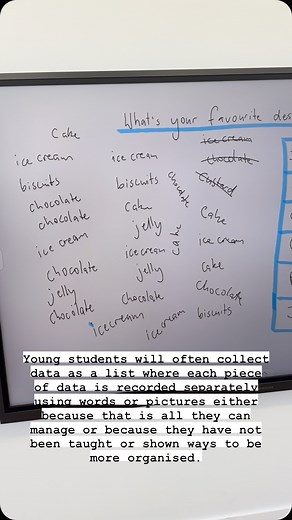 What's your favourite des
Cake
ice cream
biscuits
chocolate
chocolate
ice cream
chocolate
jelly
chocolate
ice cream
biscuits
chocolate
cake
jelly
cake
ice cream
jelly
chocolate
ice cream
ice cream
ice cream
chocolate
custard
Cake
ice cream
cake
chocolate
biscuits
Young students will often collect
data as a list where each piece
of data is recorded separately
using words or pictures either
because that is all they can
manage or because they have not
been taught or shown ways to be
more organised.